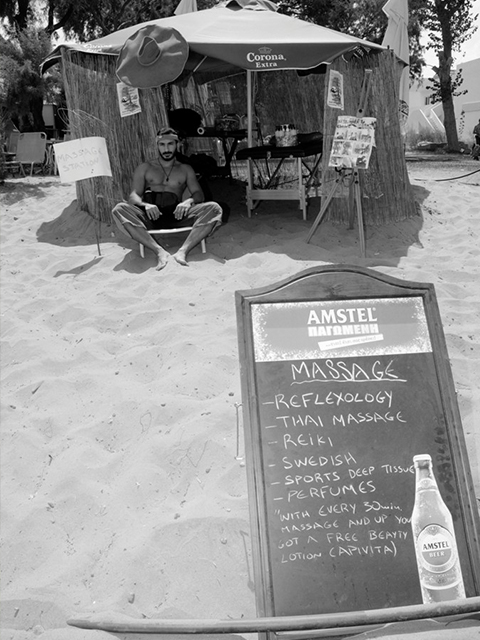 Corona
Extra
MASSAGE
AMSTEL
ΠΑΓΩΜΕΝΗ
MASSAGE
-REFLEXOLOGY
-THAI MASSAGE
-REIKI
-SWEDISH
-SPORTS DEEP TISSUE
-PERFUMES
"WITH EVERY 30min
MASSAGE AND UP YOU
GOT A FREE BEAYTY
LOTION (APIVITA)
AMSTEL
BEER